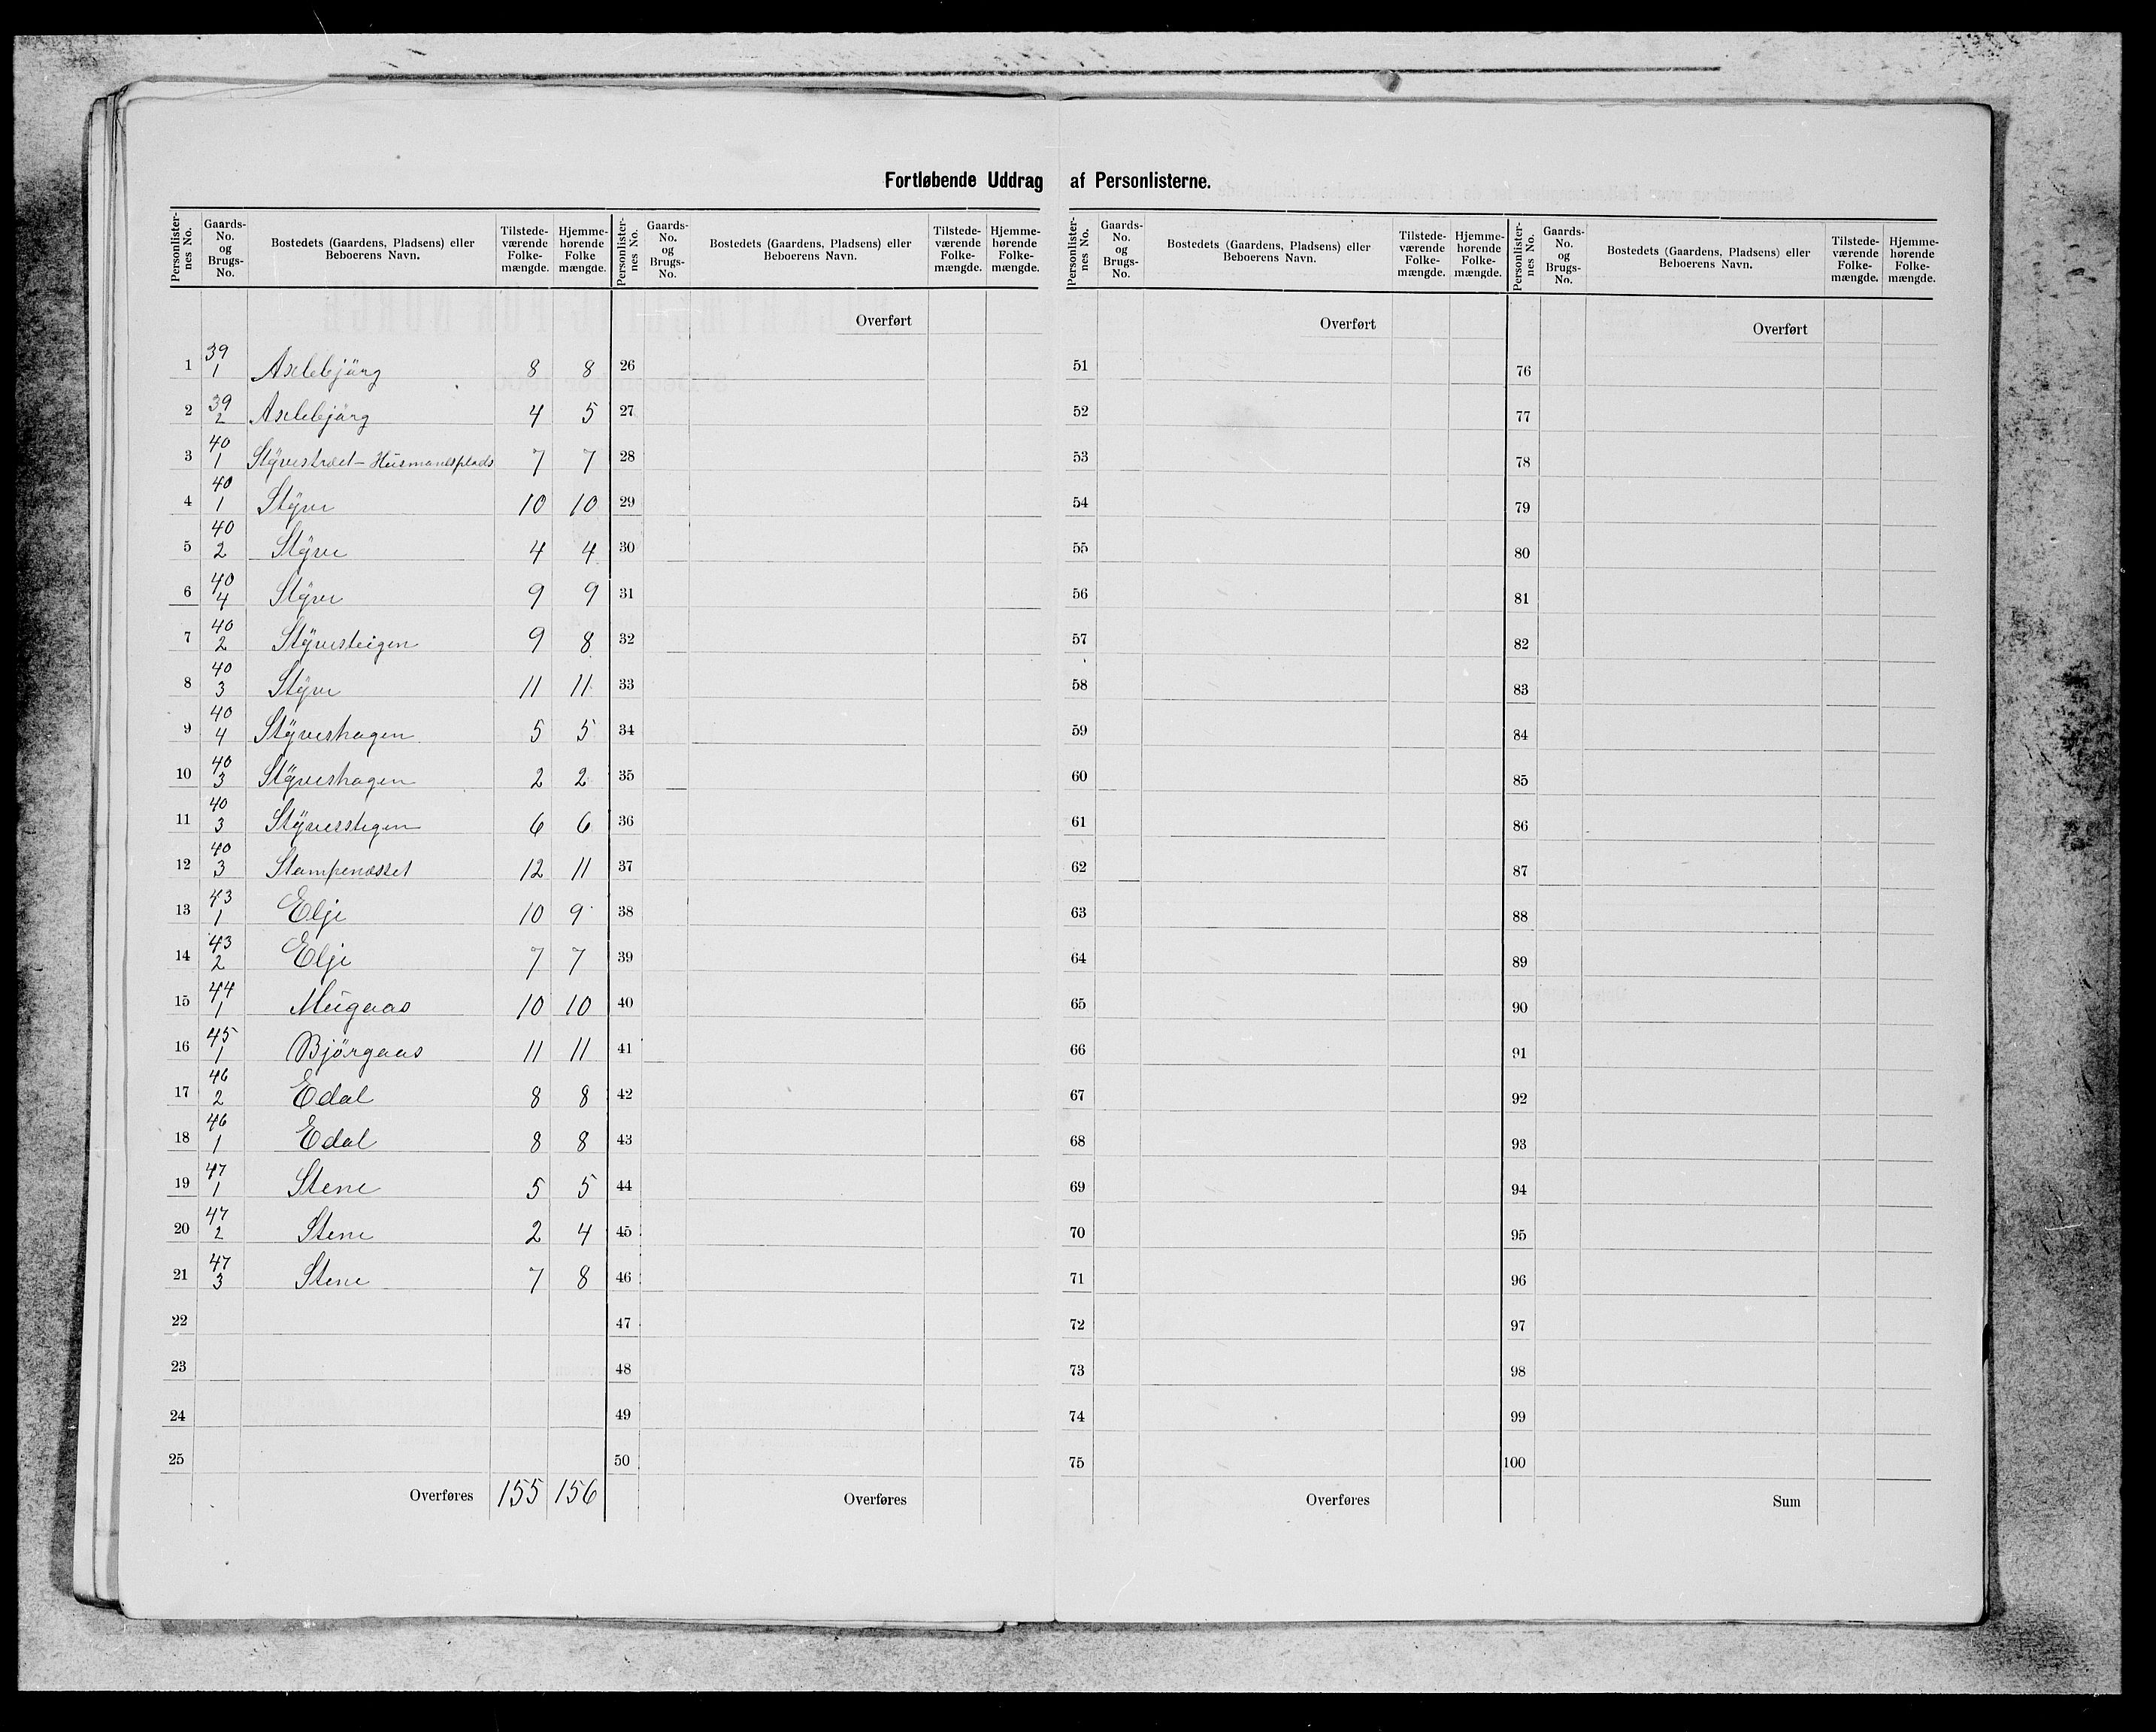 Fortløbende Uddrag af Personlisterne.
Personlister-nes No. | Gaards-No. og Brugs-No. | Bostedets (Gaardens, Pladsens) eller Beboerens Navn. | Tilstede-værende Folke-mængde. | Hjemme-hørende Folke mængde.
1 39/1 Axlebjärg 8 8
2 39/2 Axlebjärg 4 5
3 40/1 Stÿvestræt - Husmandsplads 7 7
4 40/1 Stÿve 10 10
5 40/2 Stÿve 4 4
6 40/4 Stÿve 9 9
7 40/2 Stÿvesteigen 9 8
8 40/3 Stÿve 11 11
9 40/4 Stÿveshagen 5 5
10 40/3 Stÿveshagen 2 2
11 40/3 Stÿvesstegen 6 6
12 40/3 Stampenæsset 12 11
13 43/1 Elje 10 9
14 43/2 Elje 7 7
15 44/1 Mugaas 10 10
16 45/1 Bjørgaas 11 11
17 46/2 Edal 8 8
18 46/1 Edal 8 8
19 47/1 Stene 5 5
20 47/2 Stene 2 4
21 47/3 Stene 7 8
22
23
24
25
Overføres 155 156
Personlister-nes No. | Gaards-No. og Brugs-No. | Bostedets (Gaardens, Pladsens) eller Beboerens Navn. | Tilstede-værende Folke-mængde. | Hjemme-hørende Folke-mængde.
Overført
26
27
28
29
30
31
32
33
34
35
36
37
38
39
40
41
42
43
44
45
46
47
48
49
50
Overføres
Personlister-nes No. | Gaards-No. og Brugs-No. | Bostedets (Gaardens, Pladsens) eller Beboerens Navn. | Tilstede-værende Folke-mængde. | Hjemme-hørende Folke-mængde.
Overført
51
52
53
54
55
56
57
58
59
60
61
62
63
64
65
66
67
68
69
70
71
72
73
74
75
Overføres
Personlister-nes No. | Gaards-No. og Brugs-No. | Bostedets (Gaardens, Pladsens) eller Beboerens Navn. | Tilstede-værende Folke-mængde. | Hjemme-hørende Folke-mængde.
Overført
76
77
78
79
80
81
82
83
84
85
86
87
88
89
90
91
92
93
94
95
96
97
98
99
100
Sum